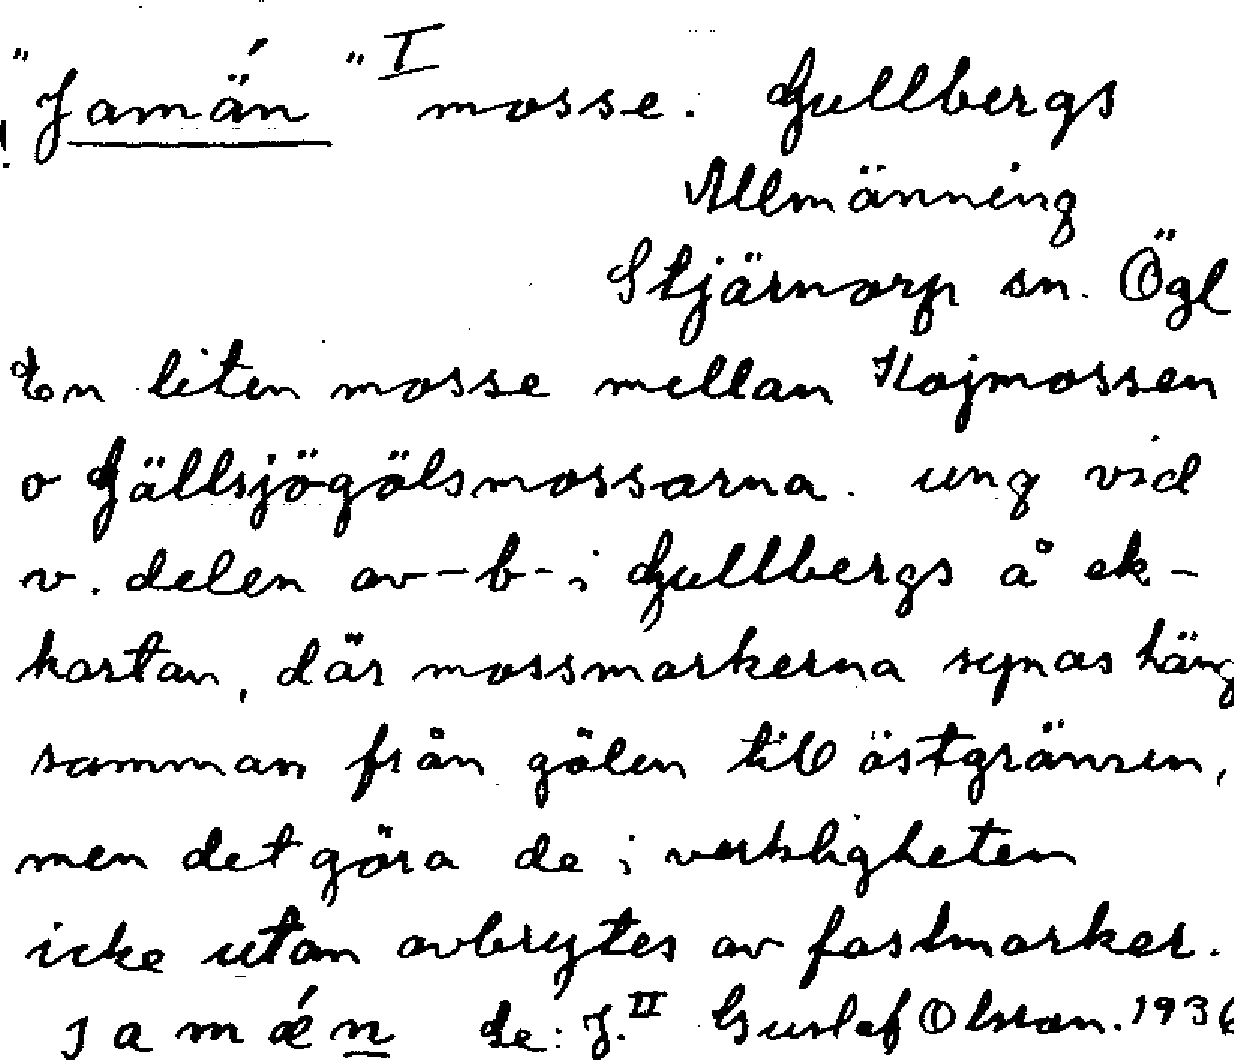 "Jamä́n" I mosse. Gullbergs
Allmänning
Stjärnorp sn. Ögl
En liten mosse mellan Kojmossen
o Gällsjögölsmossarna. ung vid
v. delen av -b- i Gullbergs å ek-
kartan, där mossmarkerna synas häng
samman från gölen till östgränsen,
men det göra de i verkligheten
icke utan avbrytes av fastmarker.
jamǽn Se: J. II Gustaf Olsson. 1936